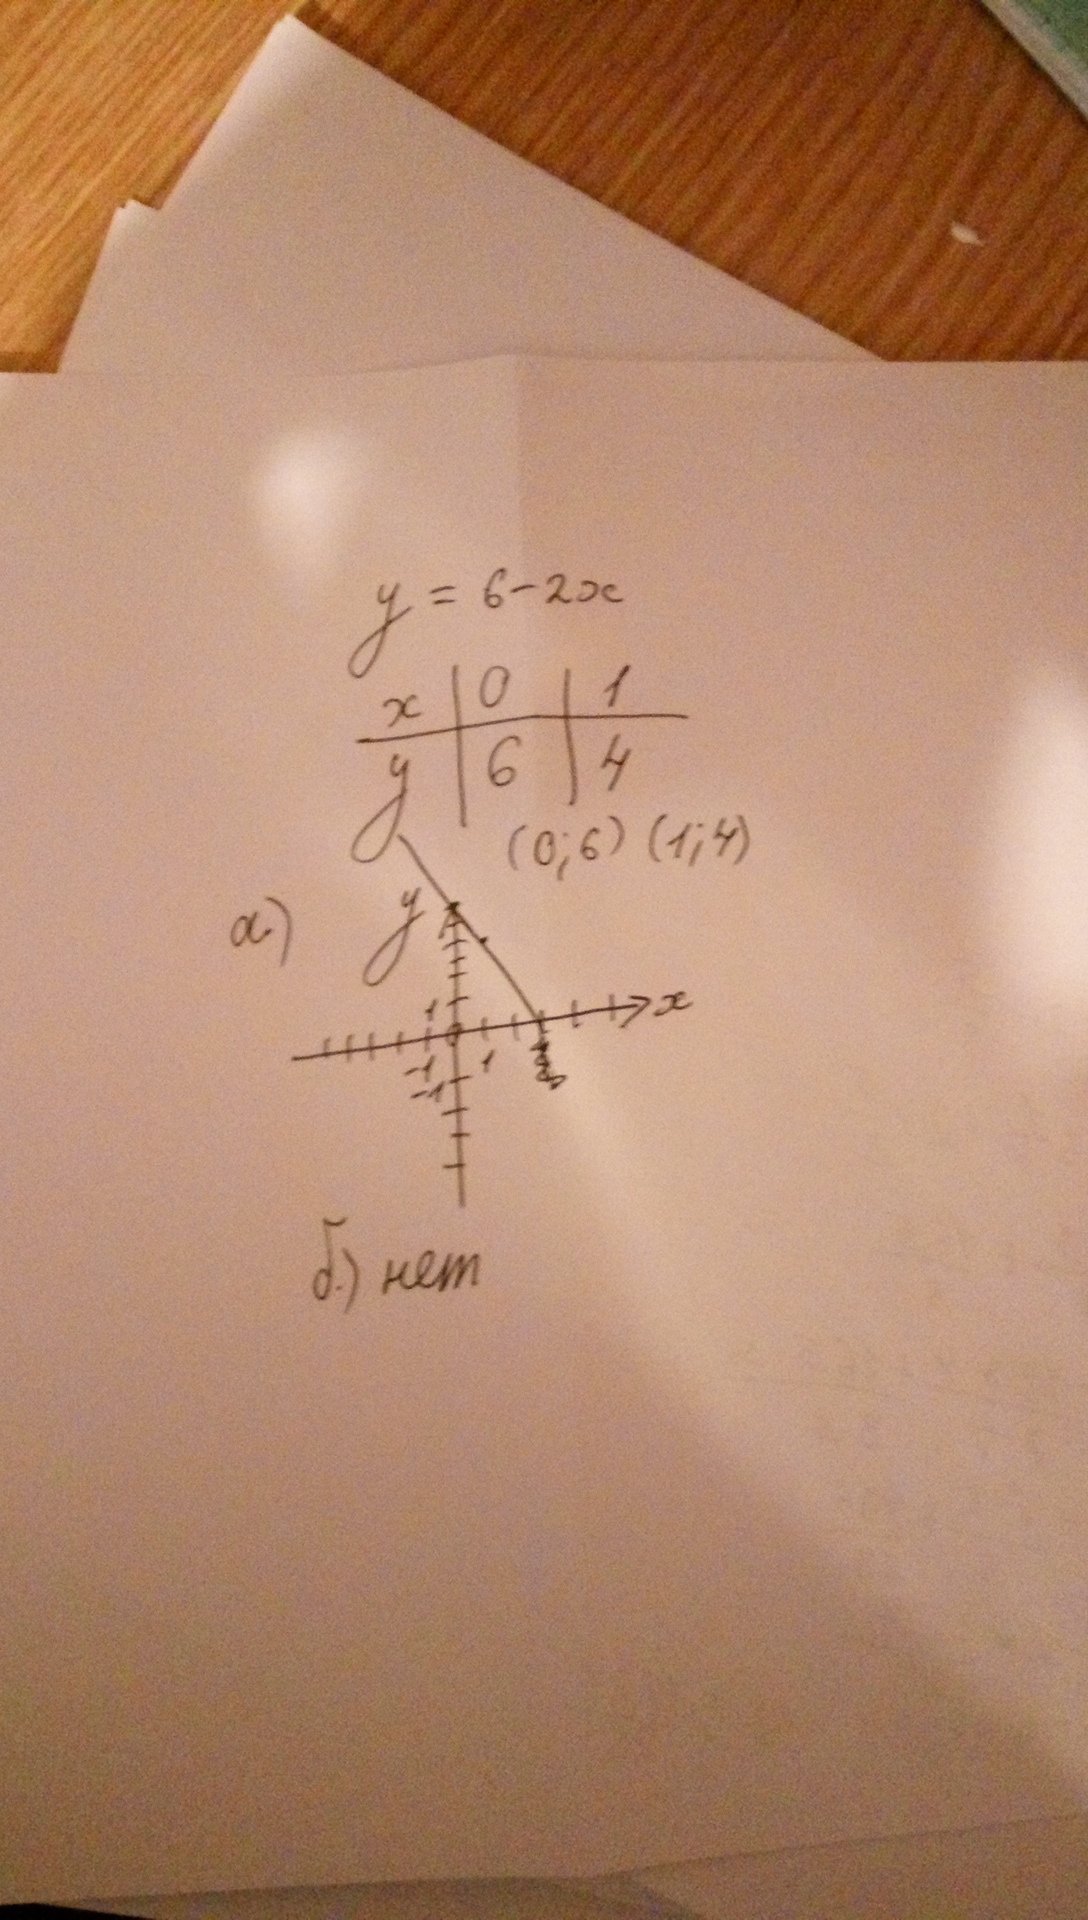 y = 6-2x
x 0 1
y 6 4
(0;6) (1;4)
а)
y
1
0
x
-1 1
-1
б) нет